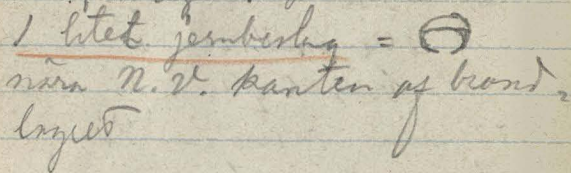 1 litet jernbeslag =
nära N.V. kanten af brand-
lagret